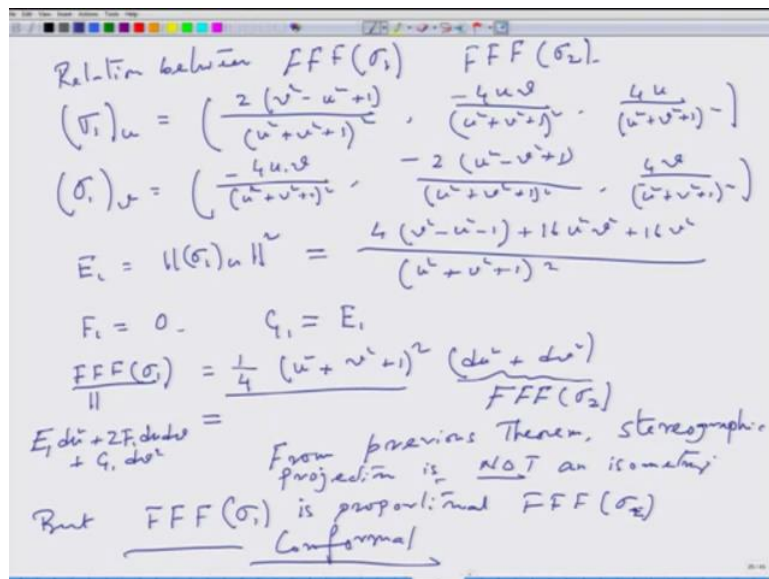 Relation between FFF(σ₁) FFF(σ₂).
(σ₁)_u = ( 2(v²-u²+1) / (u²+v²+1)² , -4uv / (u²+v²+1)² , 4u / (u²+v²+1)² )
(σ₁)_v = ( -4u.v / (u²+v²+1)² , -2(u²-v²+1) / (u²+v²+1)² , 4v / (u²+v²+1)² )
E₁ = ||(σ₁)_u||² = 4(v²-u²-1) + 16u²v² + 16v² / (u²+v²+1)²
F₁ = 0. G₁ = E₁
FFF(σ₁) = 1/4 (u²+v²+1)² (du²+dv²)
FFF(σ₂)
E₁du²+2F₁dudv =
+ G₁dv²
From previous Theorem, stereographic
projection is NOT an isometry
But FFF(σ₁) is proportional FFF(σ₂)
Conformal